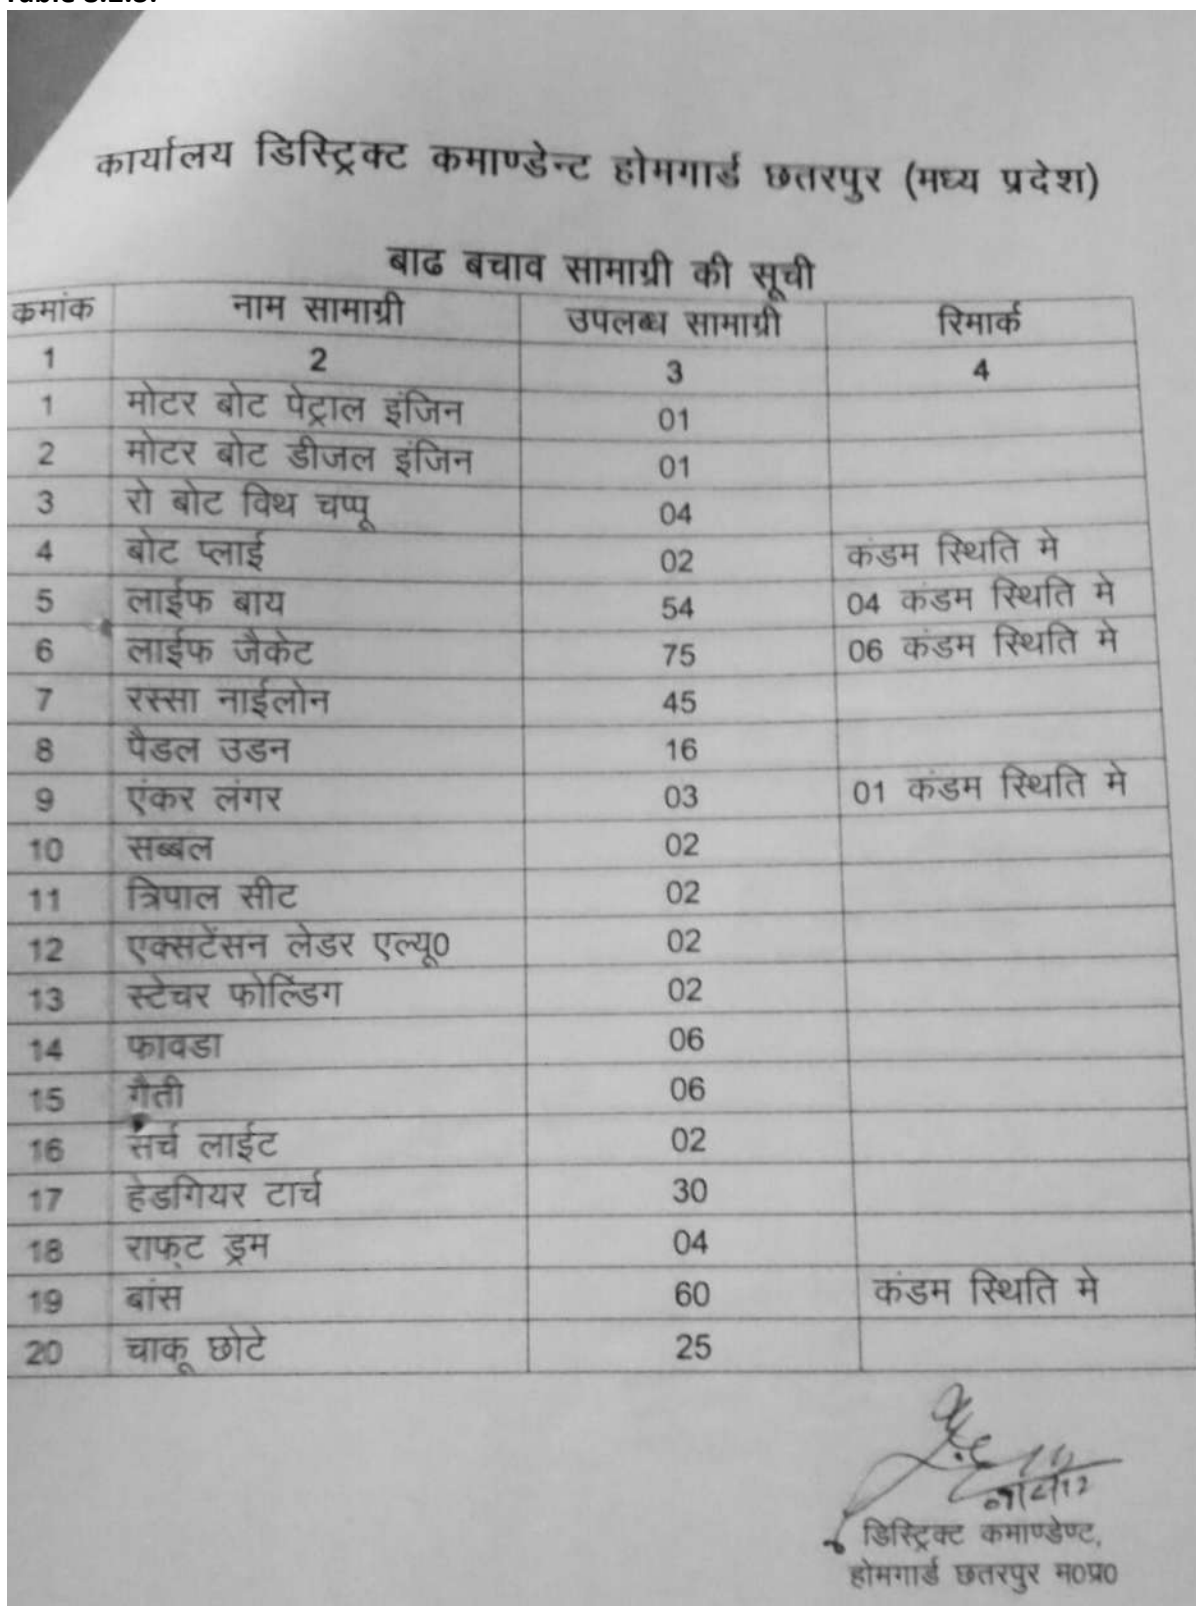 कार्यालय डिस्ट्रिक्ट कमाण्डेन्ट होमगार्ड छतरपुर (मध्य प्रदेश)
बाढ बचाव सामाग्री की सूची
कमांक नाम सामाग्री उपलब्ध सामाग्री रिमार्क
1 2 3 4
1 मोटर बोट पेट्राल इंजिन 01
2 मोटर बोट डीजल इंजिन 01
3 रो बोट विथ चप्पू 04
4 बोट प्लाई 02 कंडम स्थिति मे
5 लाईफ बाय 54 04 कंडम स्थिति मे
6 लाईफ जैकेट 75 06 कंडम स्थिति मे
7 रस्सा नाईलोन 45
8 पैडल उडन 16
9 एंकर लंगर 03 01 कंडम स्थिति मे
10 सब्बल 02
11 त्रिपाल सीट 02
12 एक्सटेंसन लेडर एल्यू0 02
13 स्टेचर फोल्डिंग 02
14 फावडा 06
15 गैती 06
16 सर्च लाईट 02
17 हेडगियर टार्च 30
18 राफ्ट ड्रम 04
19 बांस 60 कंडम स्थिति मे
20 चाकू छोटे 25
डिस्ट्रिक्ट कमाण्डेण्ट,
होमगार्ड छतरपुर म0प्र0